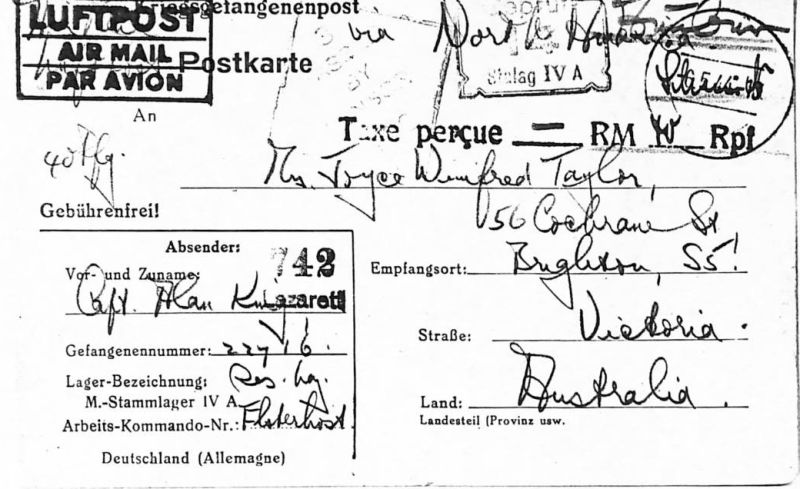 Kriegsgefangenenpost
LUFTPOST
AIR MAIL
PAR AVION
via Nord
Postkarte
Stalag IV A
An
Taxe perçue RM 40 Rpf
Mrs. Joyce Winifred Taylor,
Gebührenfrei!
56 Cochrane St.
Absender:
742
Vor- und Zuname:
Capt. Alan
Lazarett
Empfangsort: Brighton, S5.
Gefangenennummer: 22716.
Straße: Victoria.
Lager-Bezeichnung: Res. Laz.
M.-Stammlager IV A
Arbeits-Kommando-Nr.: Elsterhorst.
Land: Australia.
Landesteil (Provinz usw.
Deutschland (Allemagne)